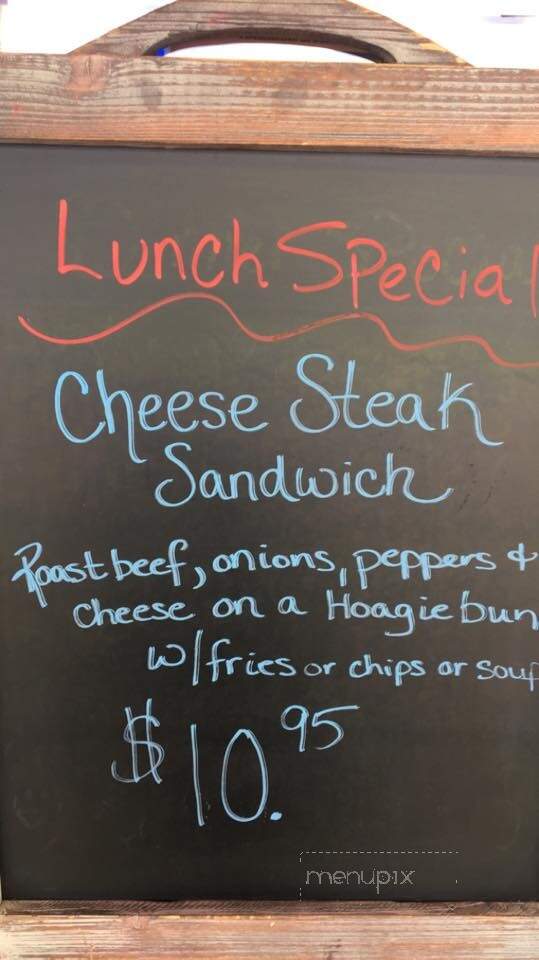 Lunch Special
Cheese Steak
Sandwich
Roast beef, onions, peppers &
cheese on a Hoagie bun
w/fries or chips or soup
$10.95
menupix